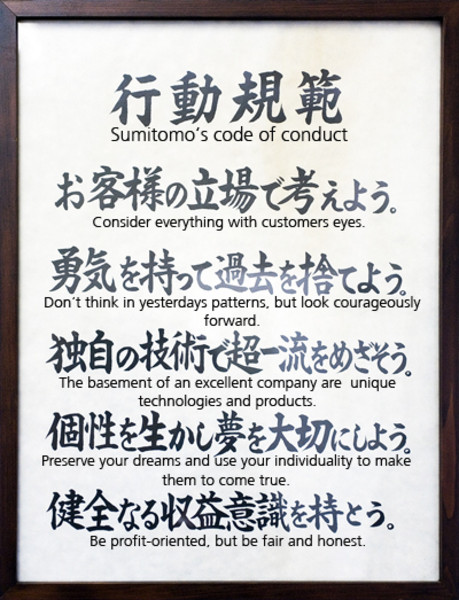 行動規範
Sumitomo's code of conduct
お客様の立場で考えよう。
Consider everything with customers eyes.
勇気を持って過去を捨てよう。
Don't think in yesterdays patterns, but look courageously
forward.
独自の技術で超一流をめざそう。
The basement of an excellent company are unique
technologies and products.
個性を生かし夢を大切にしよう。
Preserve your dreams and use your individuality to make
them to come true.
健全なる収益意識を持とう。
Be profit-oriented, but be fair and honest.